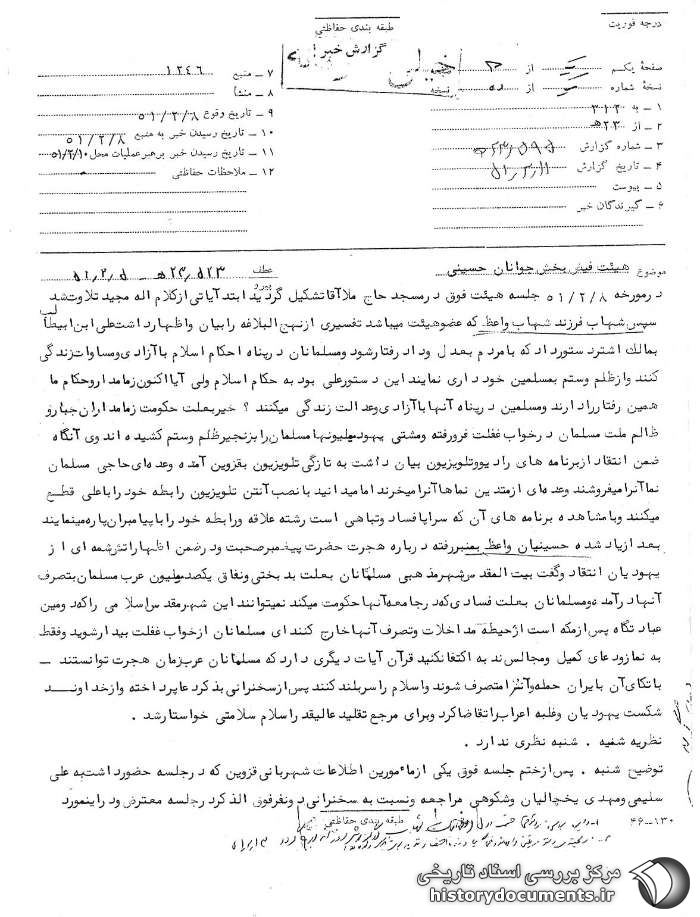 درجه فوریت
طبقه بندی حفاظتی
گزارش خبر
صفحه یکم از
نسخه شماره از نسخه
۱ ـ به ۳۱۲
۲ ـ از ۲۳هـ
۳ ـ شماره گزارش
۴ ـ تاریخ گزارش
۵ ـ پیوست
۶ ـ گیرندگان خبر
۷ ـ منبع ۱۲۴۶
۸ ـ منشأ
۹ ـ تاریخ وقوع ۵۱/۲/۸
۱۰ ـ تاریخ رسیدن خبر به منبع ۵۱/۲/۸
۱۱ ـ تاریخ رسیدن خبر برهبرعملیات محل ۵۱/۲/۱۰
۱۲ ـ ملاحظات حفاظتی
موضوع هیئت فیض بخش جوانان حسینی
عطف
پیرو
درمورخه ۵۱/۲/۸ جلسه هیئت فوق درمسجد حاج ملاآقاتشکیل گردید ابتدآیاتی ازکلام اله مجید تلاوت شد
سپس شهاب فرزند شهاب واعظ که عضوهیئت میباشد تفسیری ازنهج البلاغه رابیان واظهارداشت علی ابن ابیطالب
بمالک اشتردستورداد که بامردم بعدل وداد رفتارشود ومسلمانان درپناه احکام اسلام باآزادی ومساوات زندگی
کنند وازظلم وستم بمسلمین خود داری نمایند این دستورعلی بود به حکام اسلام ولی آیااکنون زمامداروحکام ما
همین رفتارراد ارند ومسلمین درپناه آنهاباآزادی وعدالت زندگی میکنند ؟ خیربعلت حکومت زمامداران جبارو
ظالم ملت مسلمان درخواب غفلت فرورفته ومشتی یهود ملیونهامسلمان رابزنجیرظلم وستم کشیده اند وی آنگاه
ضمن انتقاد ازبرنامه های رادیووتلویزیون بیان داشت به تازگی تلویزیون بقزوین آمده وعده ای حاجی مسلمان
نماآنرامیفروشند وعده ای ازمتدین نماهاآنرامیخرند امامیدانید بانصب آنتن تلویزیون رابطه خود راباعلی قطع
میکنند وبامشاهده برنامه های آن که سراپافساد وتباهی است رشته علاقه ورابطه خود راباپیامبران پاره مینمایند
بعد ازیاد شده حسینیان واعظ بمنبررفته درباره هجرت حضرت پیغمبرصحبت ودرضمن اظهاراتش شمه ای از
یهودیان انتقاد وگفت بیت المقدس شهرمذهبی مسلمانان بعلت بدبختی ونفاق یکصد ملیون عرب مسلمان بتصرف
آنهاد رآمده ومسلمانان بعلت فسادی که درجامعه آنهاحکومت میکند نمیتوانند این شهرمقدس اسلامی راکه دومین
عبادتگاه پس ازمکه است ازحیطه مداخلات وتصرف آنهاخارج کنند ای مسلمانان ازخواب غفلت بیدارشوید وفقط
به نمازودعای کمیل ومجالس ندبه اکتفانکنید قرآن آیات دیگری دارد که مسلمانان عرب زمان هجرت توانستند ـ
باتکای آن بایران حمله وآنرامتصرف شوند واسلام راسربلند کنند پس ازسخنرانی بذکردعاپرداخته وازخداوند
شکست یهودیان وغلبه اعراب راتقاضاکرد وبرای مرجع تقلید عالیقدراسلام سلامتی خواستارشد .
نظریه شنبه . شنبه نظری ندارد .
توضیح شنبه . پس ازختم جلسه فوق یکی ازمأمورین اطلاعات شهربانی قزوین که درجلسه حضورداشت به علی
سلیمی ومهدی یخچالیان وشکوهی مراجعه ونسبت به سخنرانی دونفرفوق الذکردرجلسه معترض ودراینمورد
طبقه بندی حفاظتی
۴۶ـ۱۳۰
مرکز بررسی اسناد تاریخی
historydocuments.ir